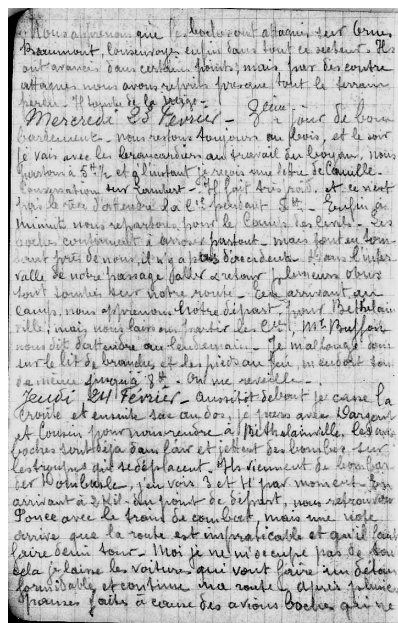 Nous apprenons que les boches ont attaqué sur Ornes
Beaumont, Consenvoye enfin dans tout ce secteur. Ils
ont avancés dans certains points, mais par des contre
attaques nous avons repris presque tout le terrain
perdu. Il tombe de la neige.
Mercredi 23 Février - 2eme jour de bom
bardement. nous restons toujours au bois, et le soir
je vais avec les brancardiers au travail du boyau, nous
partons à 5h 1/2 et à l'instant je reçois une lettre de Camille.
Conversation sur Lambert. Il fait très froid, et ce n'est
pas le rêve d'attendre la Cie pendant 5h. Enfin à
minuit nous repartons pour le Camp des Civils. Les
boches continuent à arroser partout mais tout en tom
bant près de nous, il n'y a pas d'accident. Dans l'inter
valle de notre passage aller & retour plusieurs obus
sont tombés sur notre route. En arrivant au
camp, nous apprenons notre départ pour Béthelain
ville, mais nous laissons partir les Cies, Mr Buffon
nous dit d'attendre au lendemain. Je m'allonge donc
sur le lit de branches et les pieds au feu, m'endort
de même jusqu'à 8h. On me réveille.
Jeudi 24 Février - Aussitôt debout je casse la
croute et ensuite sac au dos, je pars avec Dargent
et Cousin pour nous rendre à Béthelainville, les avions
boches sont déjà dans l'air et jettent des bombes sur
les troupes qui se déplacent. Ils viennent de bombar
der Dombasle, j'en vois 3 et 4 par moment. En
arrivant à 2 Kil. du point de départ, nous retrouvons
Ponce avec le train de combat, mais une note
arrive que la route est impraticable et qu'il faut
faire demi tour. Moi je ne m'occupe pas de tout
cela je laisse les voitures qui vont faire un détour
formidable et continue ma route. Après plusieurs
pauses faites à cause des avions boches qui ne